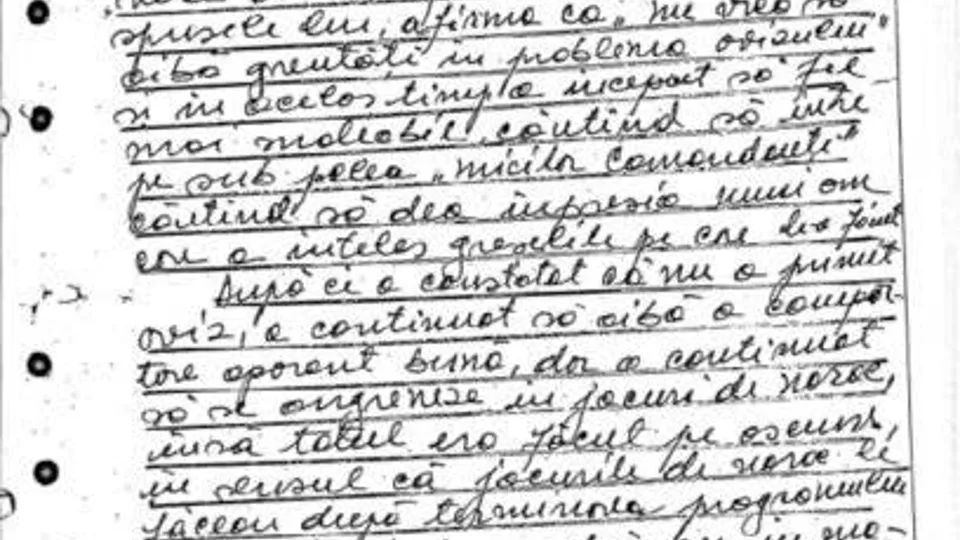 spusele lui, afirma că „nu vrea să
aibă greutăți în problema avizului"
și în același timp a început să fie
mai maleabil căutînd să intre
pe sub pielea „micilor comandanți"
căutînd să dea impresia unui om
care a înțeles greșelile pe care le-a făcut
După ce a constatat că nu a primit
aviz, a continuat să aibă o compor-
tare aparent bună, dar a continuat
să se angreneze în jocuri de noroc,
însă totul era făcut pe ascuns,
în sensul că jocurile de noroc le
făceau după terminarea programului
în mo-